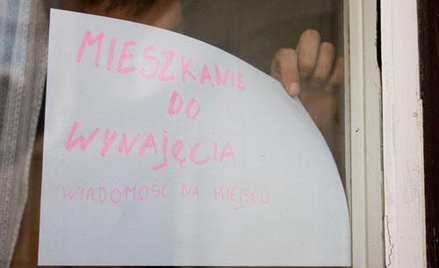 MIESZKANIE
DO
WYNAJĘCIA
WIADOMOŚĆ NA MIEJSCU